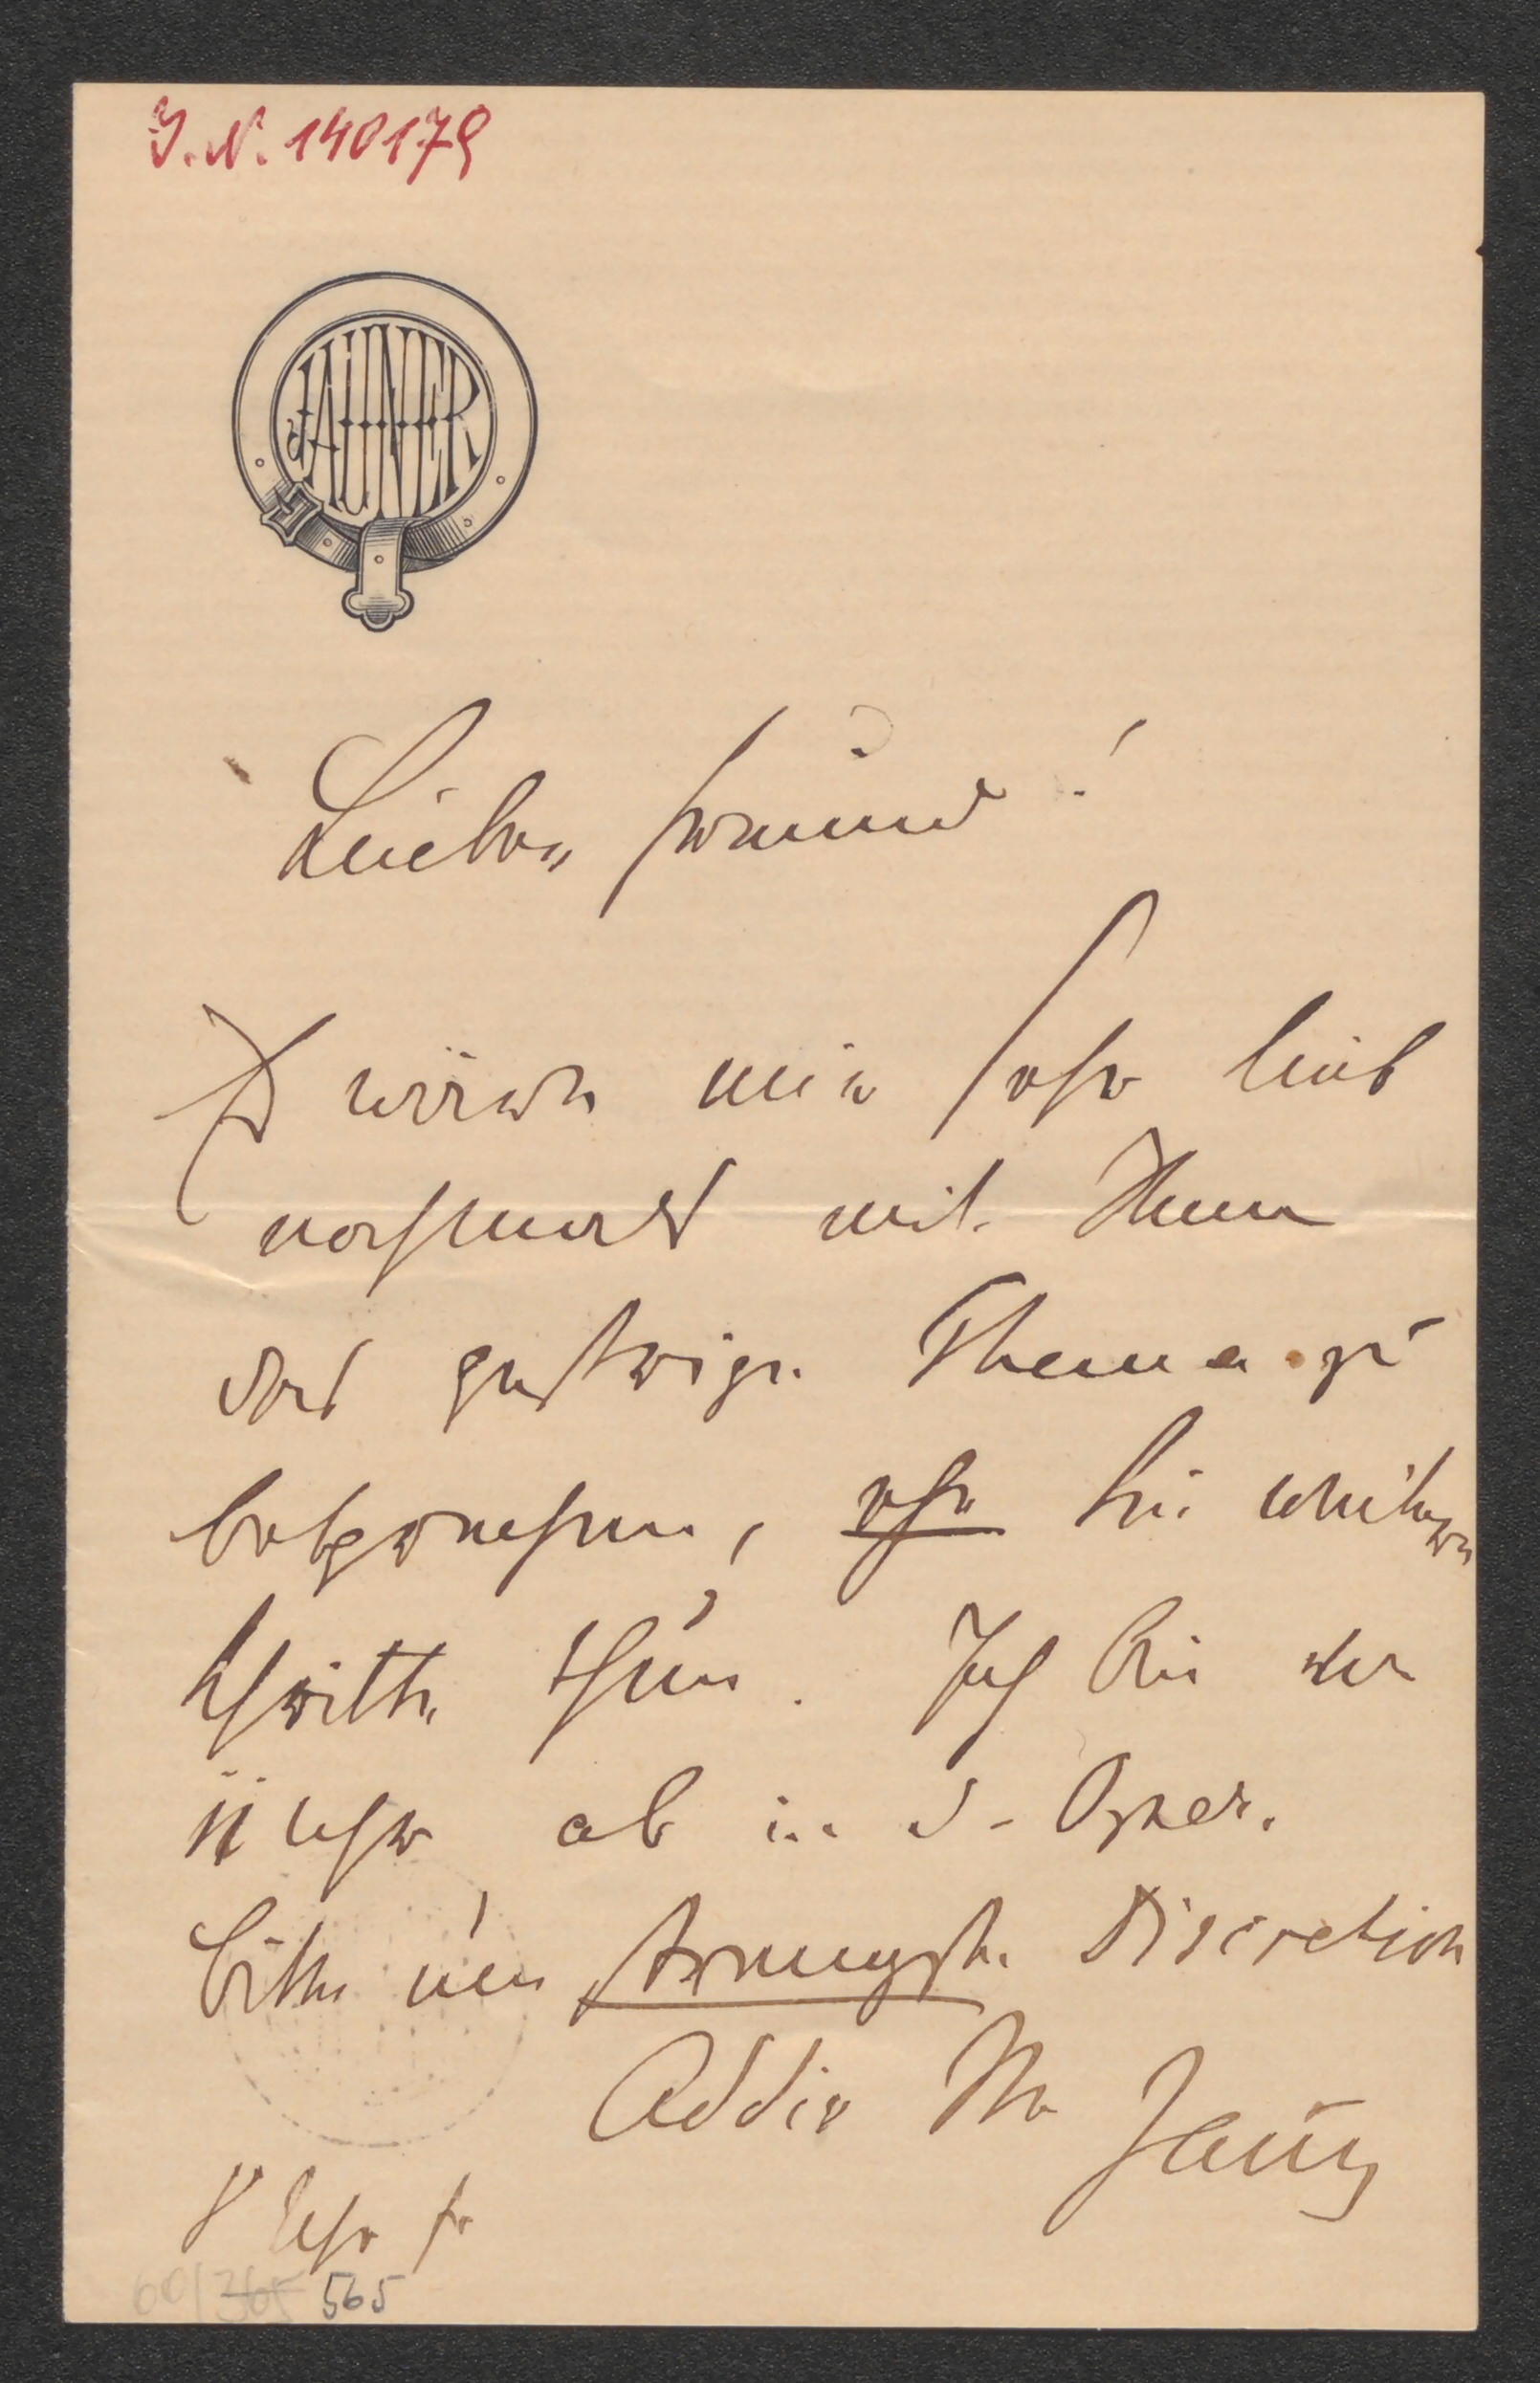 J. N. 140179
JAUNER
Lieber Freund!
Es wäre mir sehr lieb
nochmals mit Ihnen
das gestrige Thema zu
besprechen, ehe Sie weitere
Schritte thun. Ich bin
Uhr ab in d. Oper.
Bitte um strengste Discretion
Addio Ihr Jauner
8 Uhr fr
60/365 565